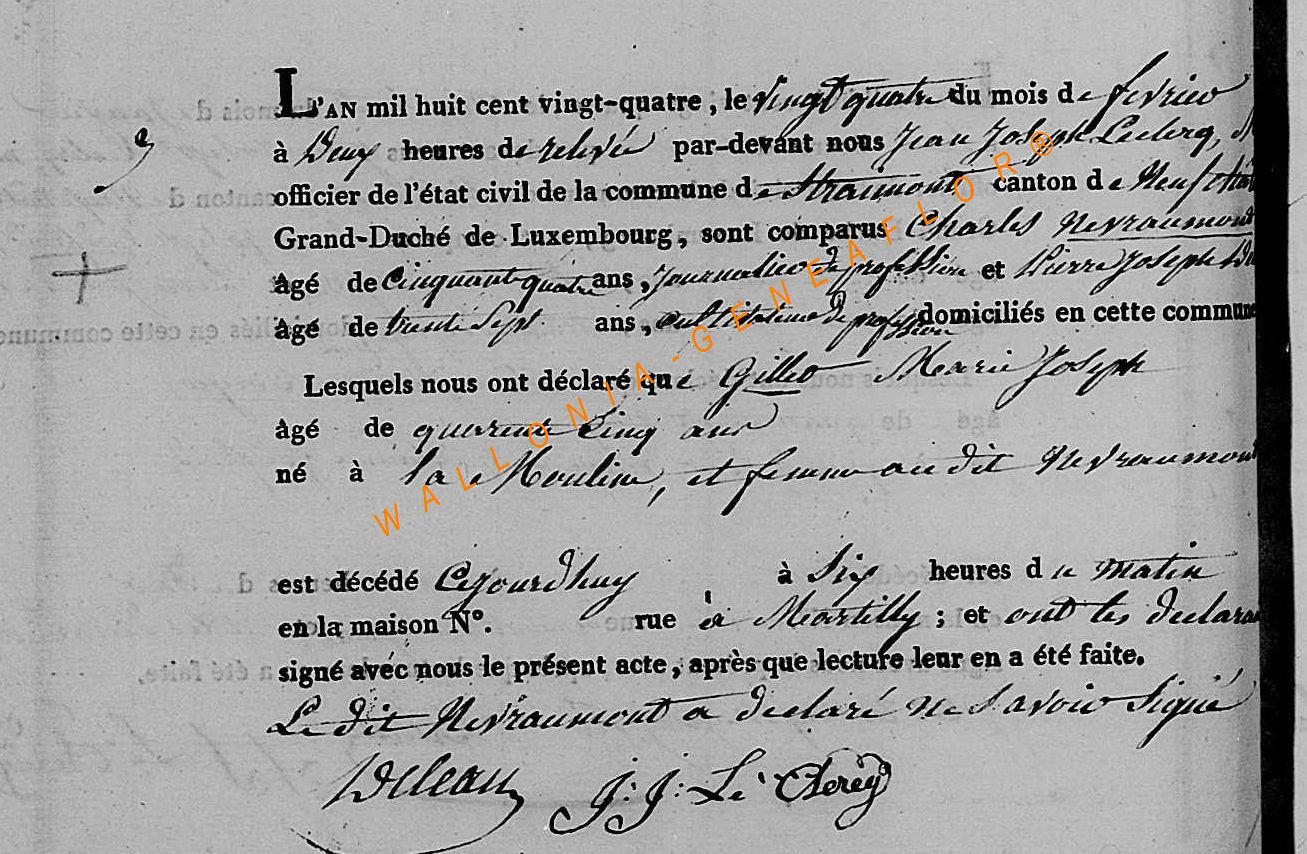 L'AN mil huit cent vingt-quatre, le vingt quatre du mois de fevrier
à Deux heures de relevée par-devant nous Jean Joseph Leclerq,
officier de l'état civil de la commune de Straimont canton de Neufchâ
Grand-Duché de Luxembourg, sont comparus Charles Nevraumont
âgé de Cinquante quatre ans, Journalier de profession et Pierre Joseph
âgé de trente Sept ans, cultivateur de profession domiciliés en cette commune
Lesquels nous ont déclaré que Gillet Marie Joseph
âgé de quarente Cinq ans
né à la Mouline, et femme au dit Nevraumont
est décédé Cejourdhuy à Six heures du matin
en la maison N°. rue à Martilly ; et ont les declara
signé avec nous le présent acte, après que lecture leur en a été faite.
Le dit Nevraumont a declaré ne Savoir Signé
J: J: Le Clercq
WALLONIA-GENEAFLOR®